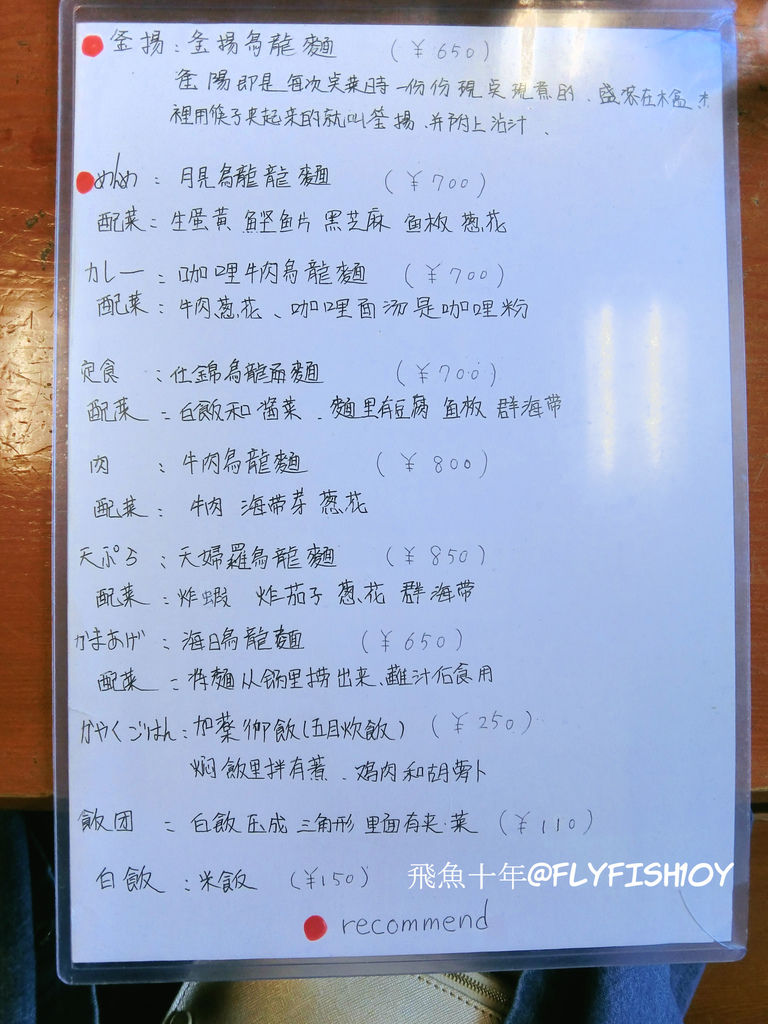 釜揚：釜揚烏龍麵 (￥650)
釜陽即是每次点菜時一份份現点現煮的、盛容在木盒
裡用筷子夹起来的就叫釜揚、并附上沾汁、
めんめ：月見烏龍龍麵 (￥700)
配菜：生蛋黄 鰹鱼片 黑芝麻 鱼板 葱花
カレー：咖哩牛肉烏龍麵 (￥700)
配菜：牛肉葱花、咖哩面汤是咖哩粉
定食：什錦烏龍麵 (￥700)
配菜：白飯和酱菜、麵里有豆腐 鱼板 群海带
肉：牛肉烏龍麵 (￥800)
配菜：牛肉 海带芽 葱花
天ぷら：天婦羅烏龍麵 (￥850)
配菜：炸蝦 炸茄子 葱花 群海带
かまあげ：海日烏龍麵 (￥650)
配菜：将麵从锅里捞出来、蘸汁后食用
かやくごはん：加薬御飯(五目炊飯) (￥250)
焖飯里拌有薯、鸡肉和胡萝卜
飯团：白飯压成 三角形 里面有夹菜 (￥110)
白飯：米飯 (￥150)
飛魚十年@FLYFISH10Y
recommend